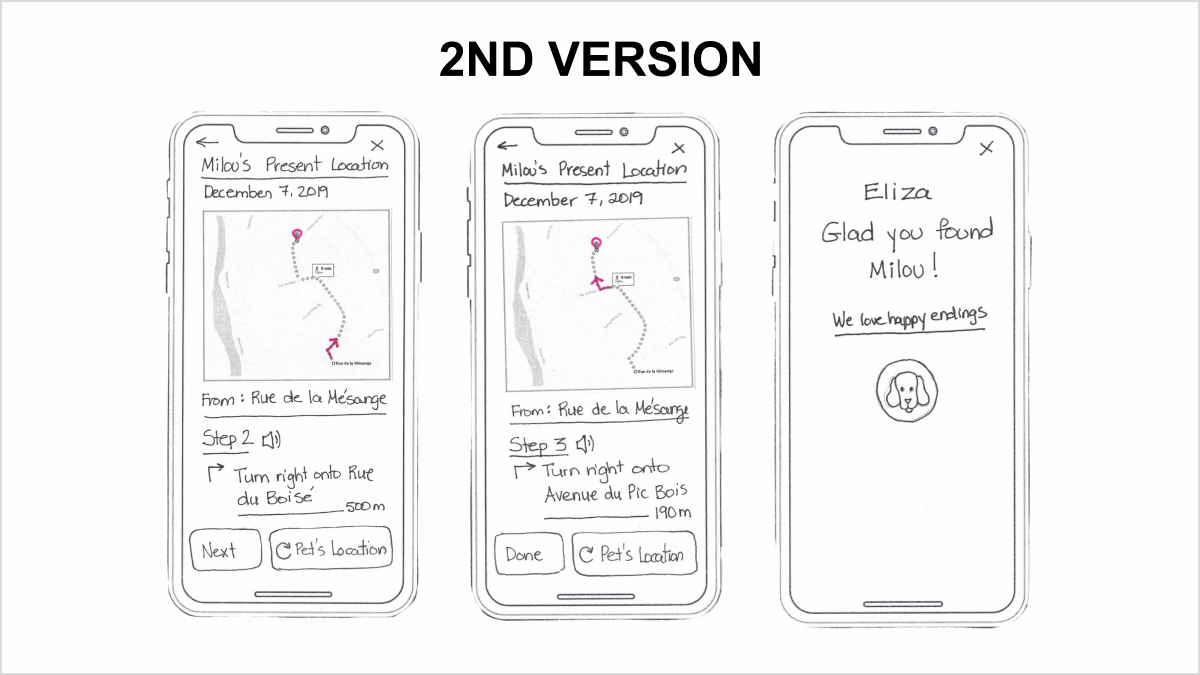 2ND VERSION
Milou's Present Location
December 7, 2019
9 min
Rue de la Mésange
From: Rue de la Mésange
Step 2
Turn right onto Rue
du Boisé
500m
Next
Pet's Location
Milou's Present Location
December 7, 2019
9 min
Rue de la Mésange
From: Rue de la Mésange
Step 3
Turn right onto
Avenue du Pic Bois
190m
Done
Pet's Location
Eliza
Glad you found
Milou!
We love happy endings